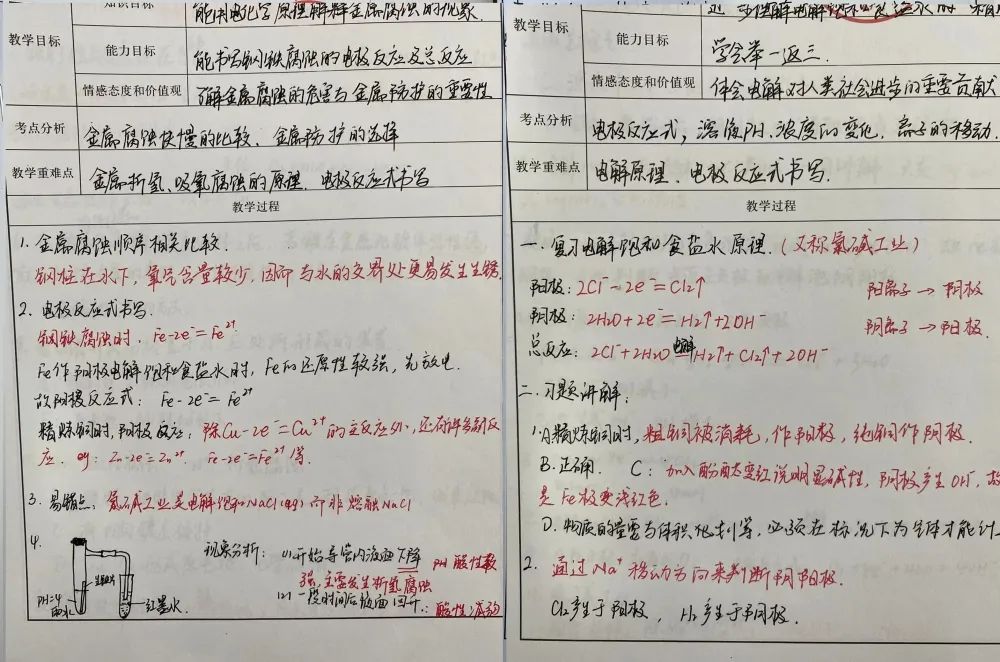 知识目标
能用电化学原理解释金属腐蚀的现象.
教学目标
能力目标
能书写钢铁腐蚀的电极反应及总反应
情感态度和价值观
了解金属腐蚀的危害与金属防护的重要性
考点分析
金属腐蚀快慢的比较、金属防护的选择
教学重难点
金属析氢、吸氧腐蚀的原理、电极反应式书写
教学过程
1. 金属腐蚀顺序相关比较.
钢柱在水下, 氧气含量较少, 因而与水的交界处更易发生生锈.
2. 电极反应式书写.
钢铁腐蚀时. Fe-2e⁻=Fe²⁺.
Fe作阳极电解饱和食盐水时, Fe的还原性较强, 先放电.
故阳极反应式: Fe-2e⁻=Fe²⁺
精炼铜时, 阳极反应: 除Cu-2e⁻=Cu²⁺的主反应外, 还有许多副反
应. eg: Zn-2e⁻=Zn²⁺. Fe-2e⁻=Fe²⁺等.
3. 易错点: 氯碱工业是电解饱和NaCl(aq) 而非熔融NaCl
4.
生铁片
PH=4
雨水
红墨水.
现象分析: (1)开始导管内液面下降
PH 酸性较
强, 主要发生析氢腐蚀
(2)一段时间后液面回升.: 酸性减弱
教学目标
能力目标
学会举一返三.
情感态度和价值观
体会电解对人类社会进步的重要贡献
考点分析
电极反应式, 溶液PH、浓度的变化. 离子的移动
教学重难点
电解原理、电极反应式书写.
教学过程
一. 复习电解饱和食盐水原理. (又称氯碱工业)
阳极: 2Cl⁻-2e⁻=Cl₂↑ 阳离子 → 阴极
阴极: 2H₂O+2e⁻=H₂↑+2OH⁻ 阴离子 → 阳极.
总反应: 2Cl⁻+2H₂O 电解 H₂↑+Cl₂↑+2OH⁻
二. 习题讲解:
1. A. 精炼铜时, 粗铜被消耗, 作阳极, 纯铜作阴极.
B. 正确. C: 加入酚酞变红说明显碱性, 阴极产生OH⁻, 故
是Fe极变浅红色.
D. 物质的量要与体积化划等, 必须在标况下为气体才能计
2. 通过Na⁺移动方向来判断阴阳极.
Cl₂产生于阳极, H₂产生于阴极.